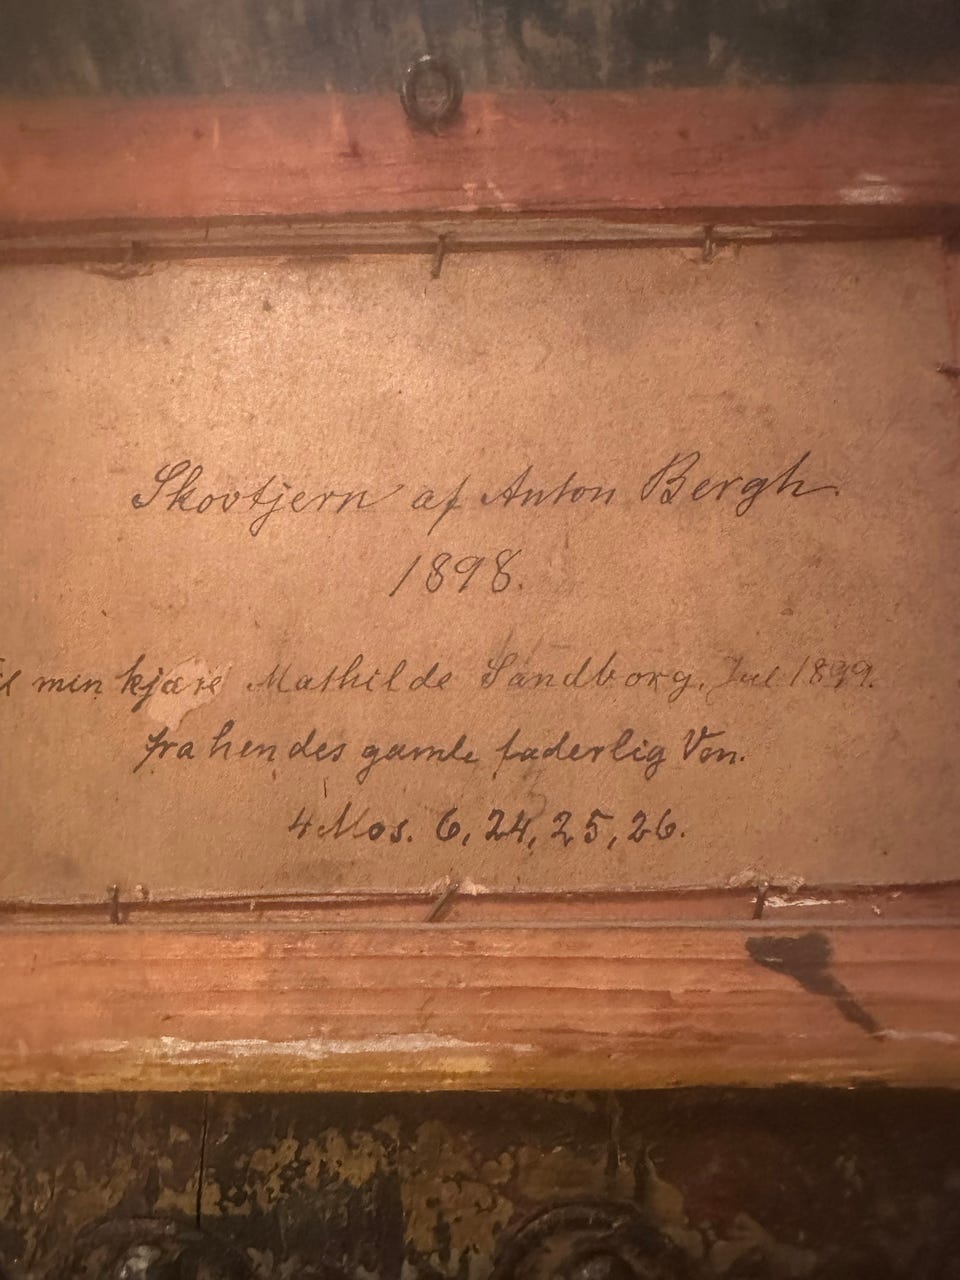 Skovtjern af Anton Bergh.
1898.
min kjære Mathilde Sandborg, Jul 1899.
fra hendes gamle faderlig Ven.
4 Mos. 6, 24, 25, 26.